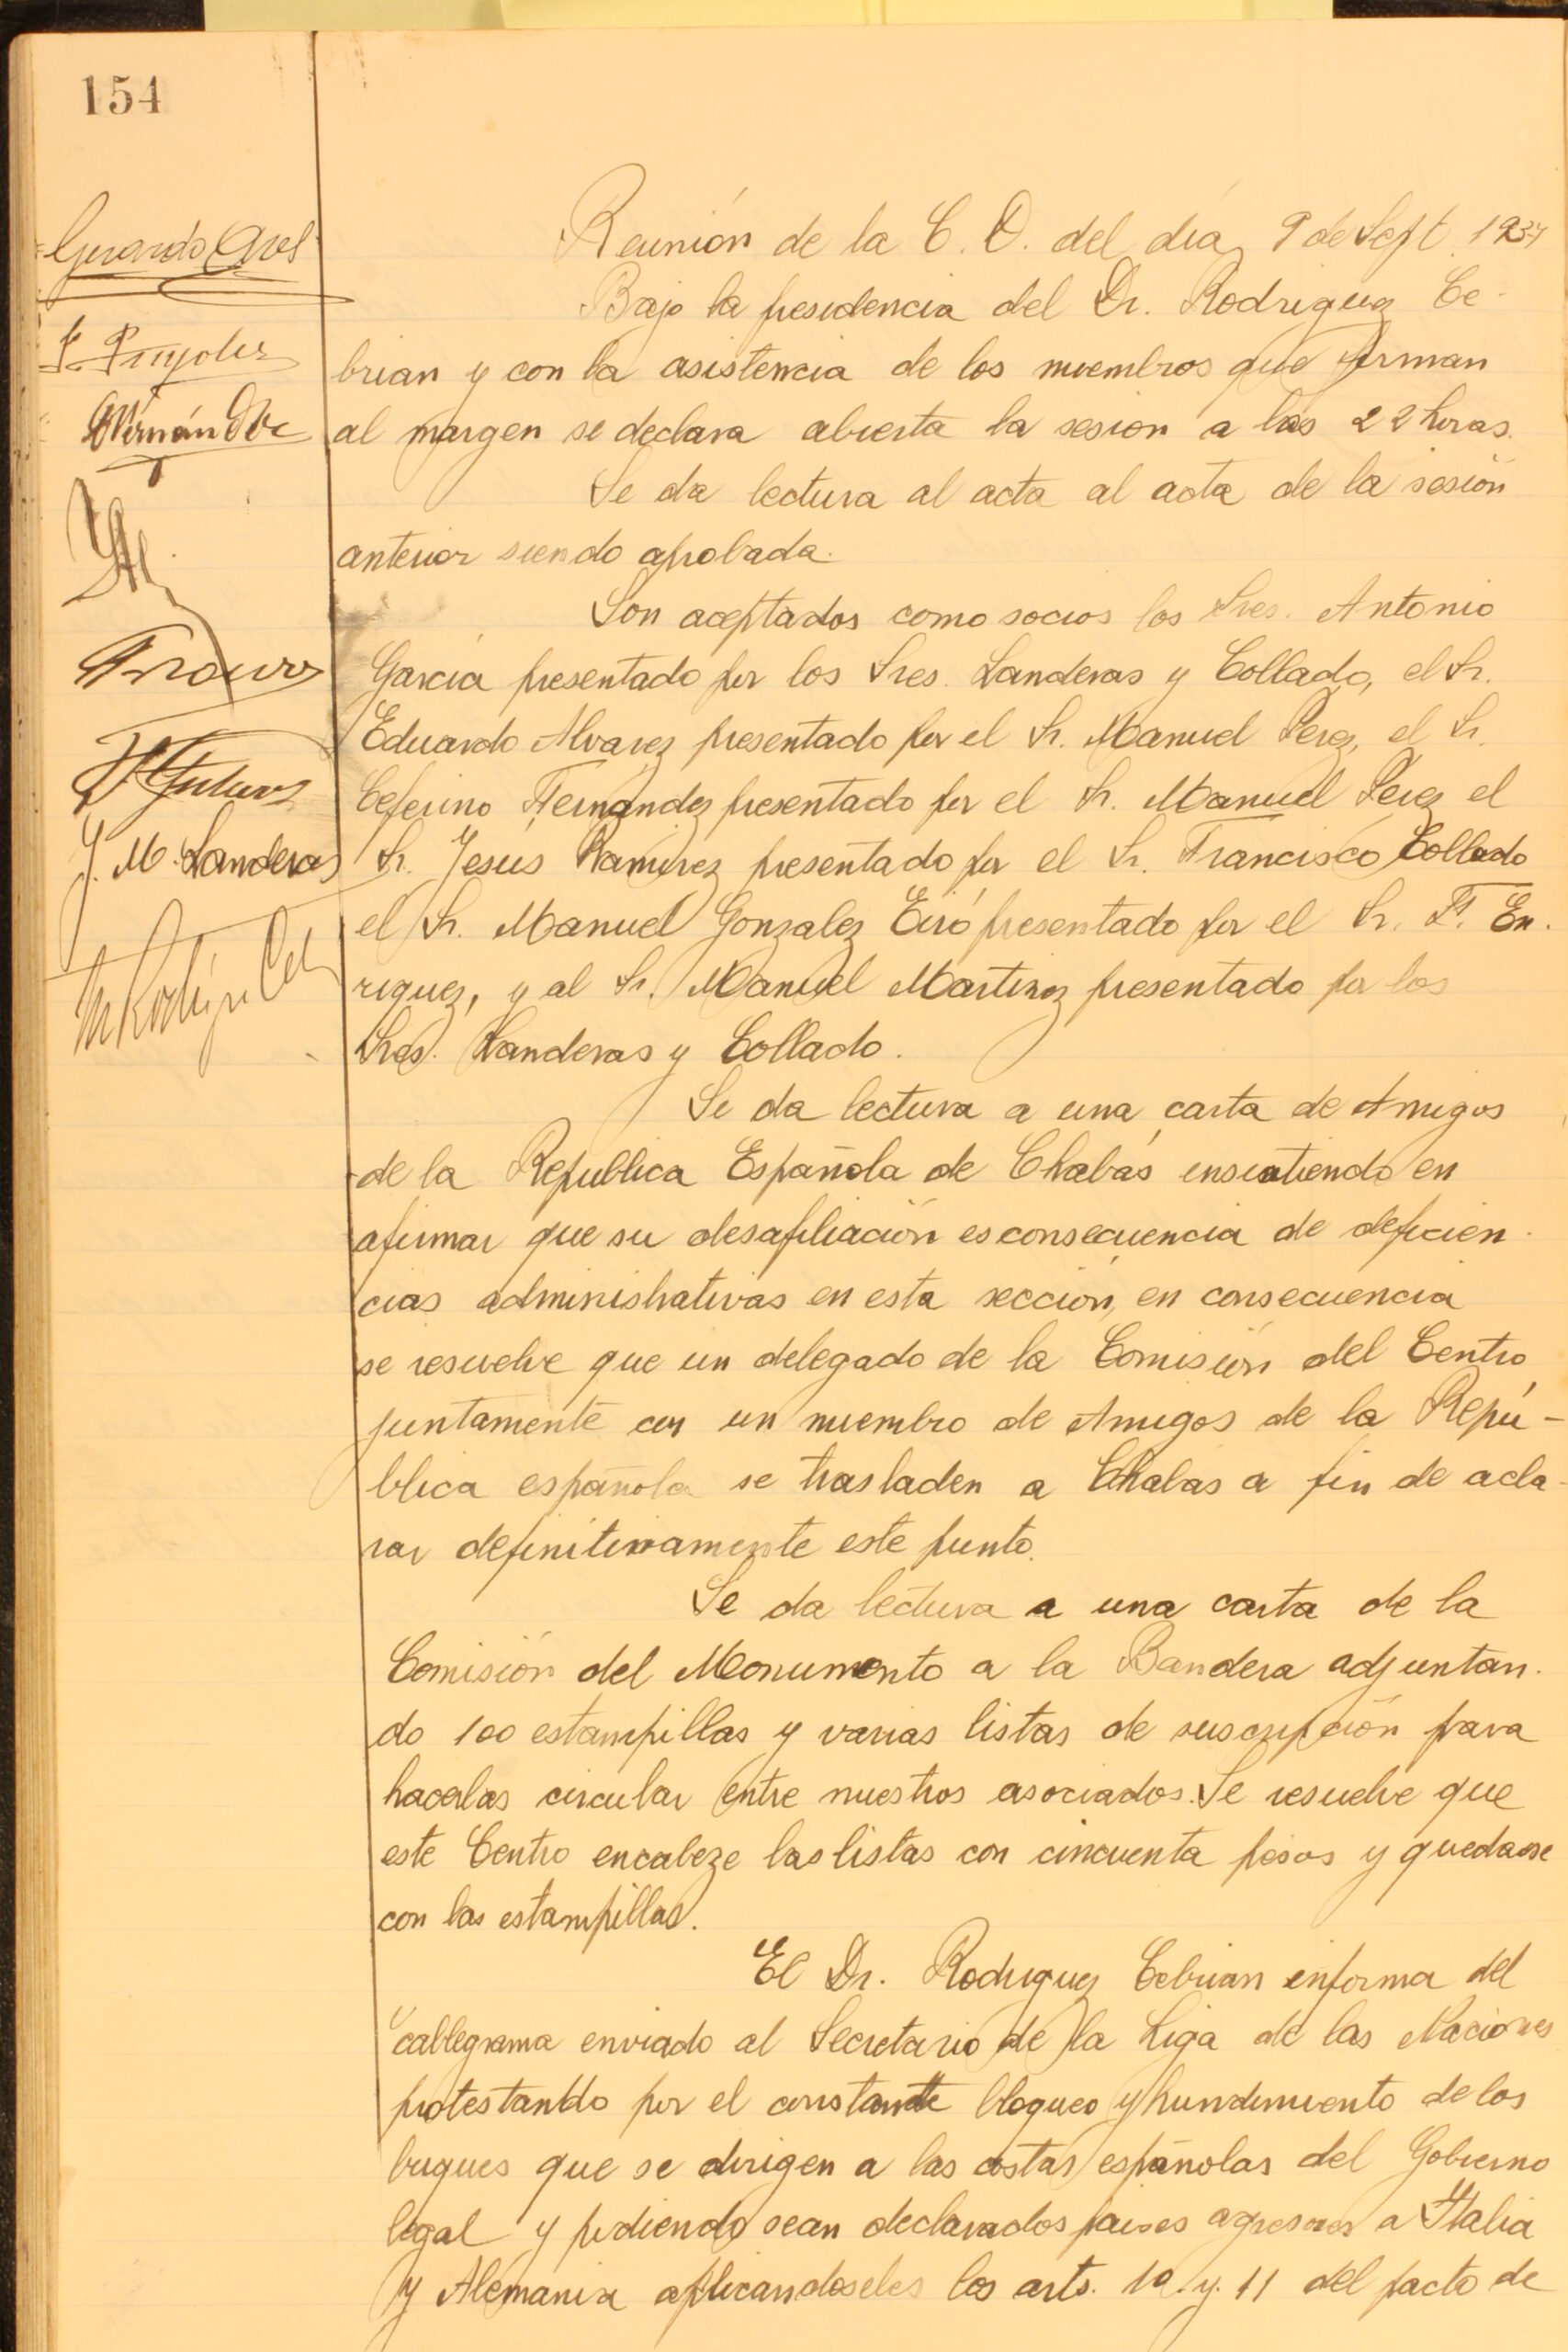 154
Reunión de la C. D. del día 9 de Sept. 1937
Bajo la presidencia del Dr. Rodriguez Ce-
brian y con la asistencia de los miembros que firman
al margen se declara abierta la sesion a las 22 horas.
Se da lectura al acta al acta de la sesión
anterior siendo aprobada.
Son aceptados como socios los Sres. Antonio
García presentado por los Sres. Landeras y Collado, el Sr.
Eduardo Alvarez presentado por el Sr. Manuel Perez, el Sr.
Ceferino Fernández presentado por el Sr. Manuel Perez el
Sr. Jesús Ramirez presentado por el Sr. Francisco Collado
el Sr. Manuel Gonzalez Eiró presentado por el Sr. F. En.
riquez, y al Sr. Manuel Martinez presentado por los
Sres. Landeras y Collado.
Se da lectura a una carta de Amigos
de la Republica Española de Chabás ensistiendo en
afirmar que su desafiliación es consecuencia de deficien-
cias administrativas en esta sección, en consecuencia
se resuelve que un delegado de la Comisión del Centro,
juntamente con un miembro de Amigos de la Repú-
blica española se trasladen a Chabas a fin de acla-
rar definitivamente este punto.
Se da lectura a una carta de la
Comisión del Monumento a la Bandera adjuntan-
do 100 estampillas y varias listas de suscripción para
hacerlas circular entre nuestros asociados. Se resuelve que
este Centro encabeze las listas con cincuenta pesos y quedarse
con las estampillas.
El Dr. Rodriguez Cebrian informa del
cablegrama enviado al Secretario de la Liga de las Naciones
protestando por el constante bloqueo y hundimiento de los
buques que se dirigen a las costas españolas del Gobierno
legal y pidiendo sean declarados paises agresores a Italia
y Alemania aplicandoseles los arts. 10 y 11 del pacto de
Gerardo
Hernández
J. M. Landeras